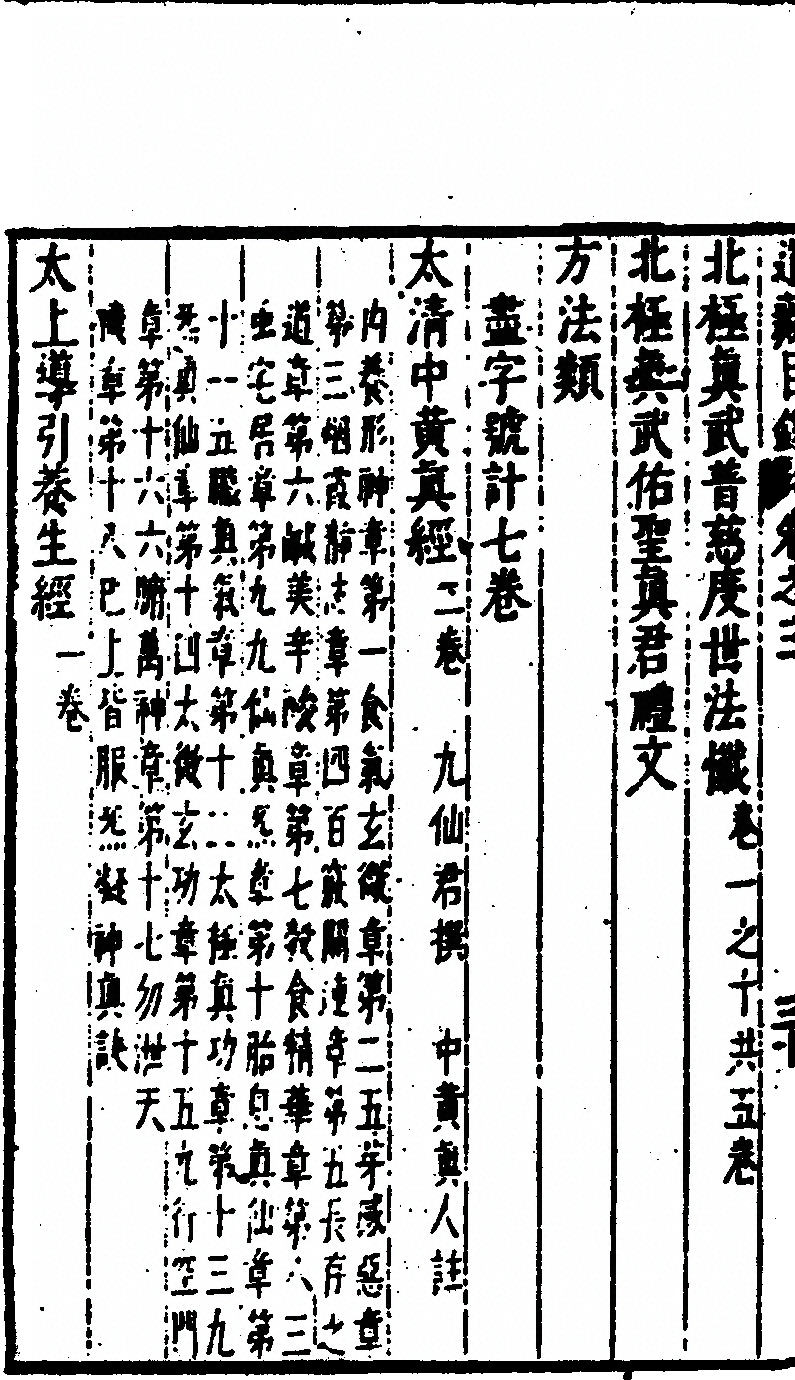 道藏目錄卷之三 三十
北極真武普慈度世法懺 卷一之十共五卷
北極真武佑聖真君禮文
方法類
盡字號計七卷
太清中黄真經 二卷 九仙君撰 中黄真人註
内養形神章第一食氣玄微章第二五芽咸惡章
第三烟霞靜志章第四百竅關連章第五長存之
道章第六鹹美辛酸章第七穀食精華章第八三
虫宅居章第九九仙真炁章第十胎息真仙章第
十一五臟真氣章第十二太極真功章第十三九
炁真仙章第十四太微玄功章第十五九行空門
章第十六六腑萬神章第十七勿泄天
機章第十八已上皆服炁凝神真訣
太上導引養生經 一卷